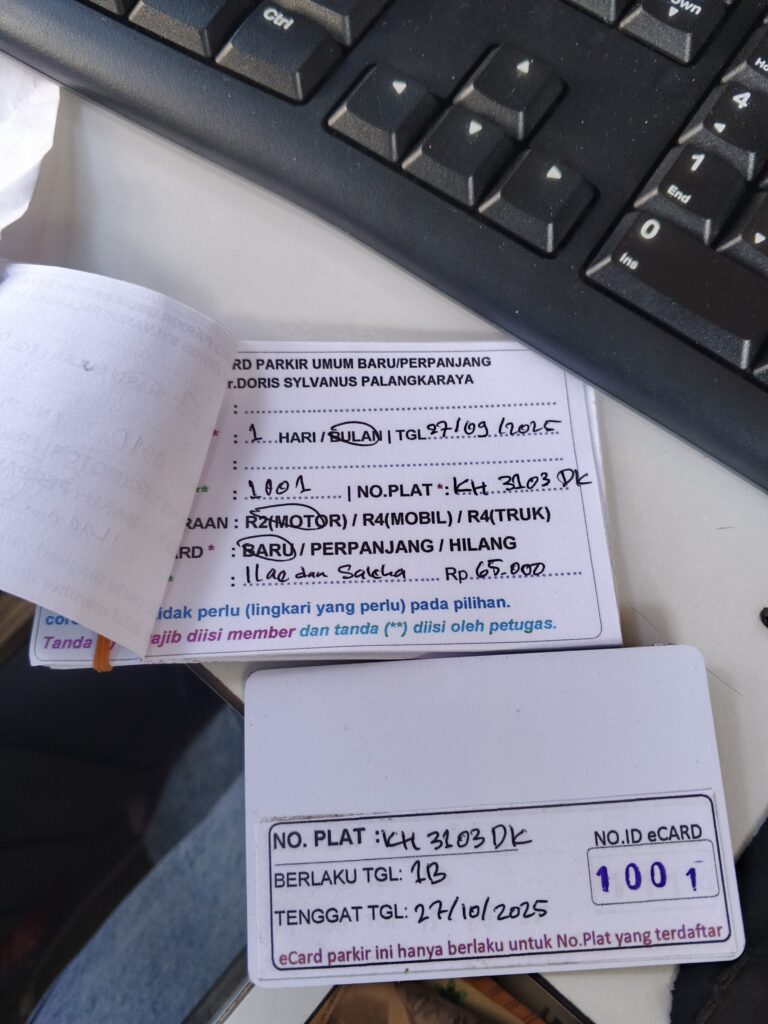 Ctrl
0
Ins
1
End
4
RD PARKIR UMUM BARU/PERPANJANG
r.DORIS SYLVANUS PALANGKARAYA
:
* : 1 HARI / BULAN | TGL 27/09/2025
:
** : 1001 | NO.PLAT *: KH 3103 DK
RAAN : R2(MOTOR) / R4(MOBIL) / R4(TRUK)
ARD * : BARU / PERPANJANG / HILANG
* : dan Rp. 65.000
idak perlu (lingkari yang perlu) pada pilihan.
Tanda ajib diisi member dan tanda (**) diisi oleh petugas.
NO. PLAT : KH 3103 DK
NO.ID eCARD
1001
BERLAKU TGL: 1B
TENGGAT TGL: 27/10/2025
eCard parkir ini hanya berlaku untuk No.Plat yang terdaftar